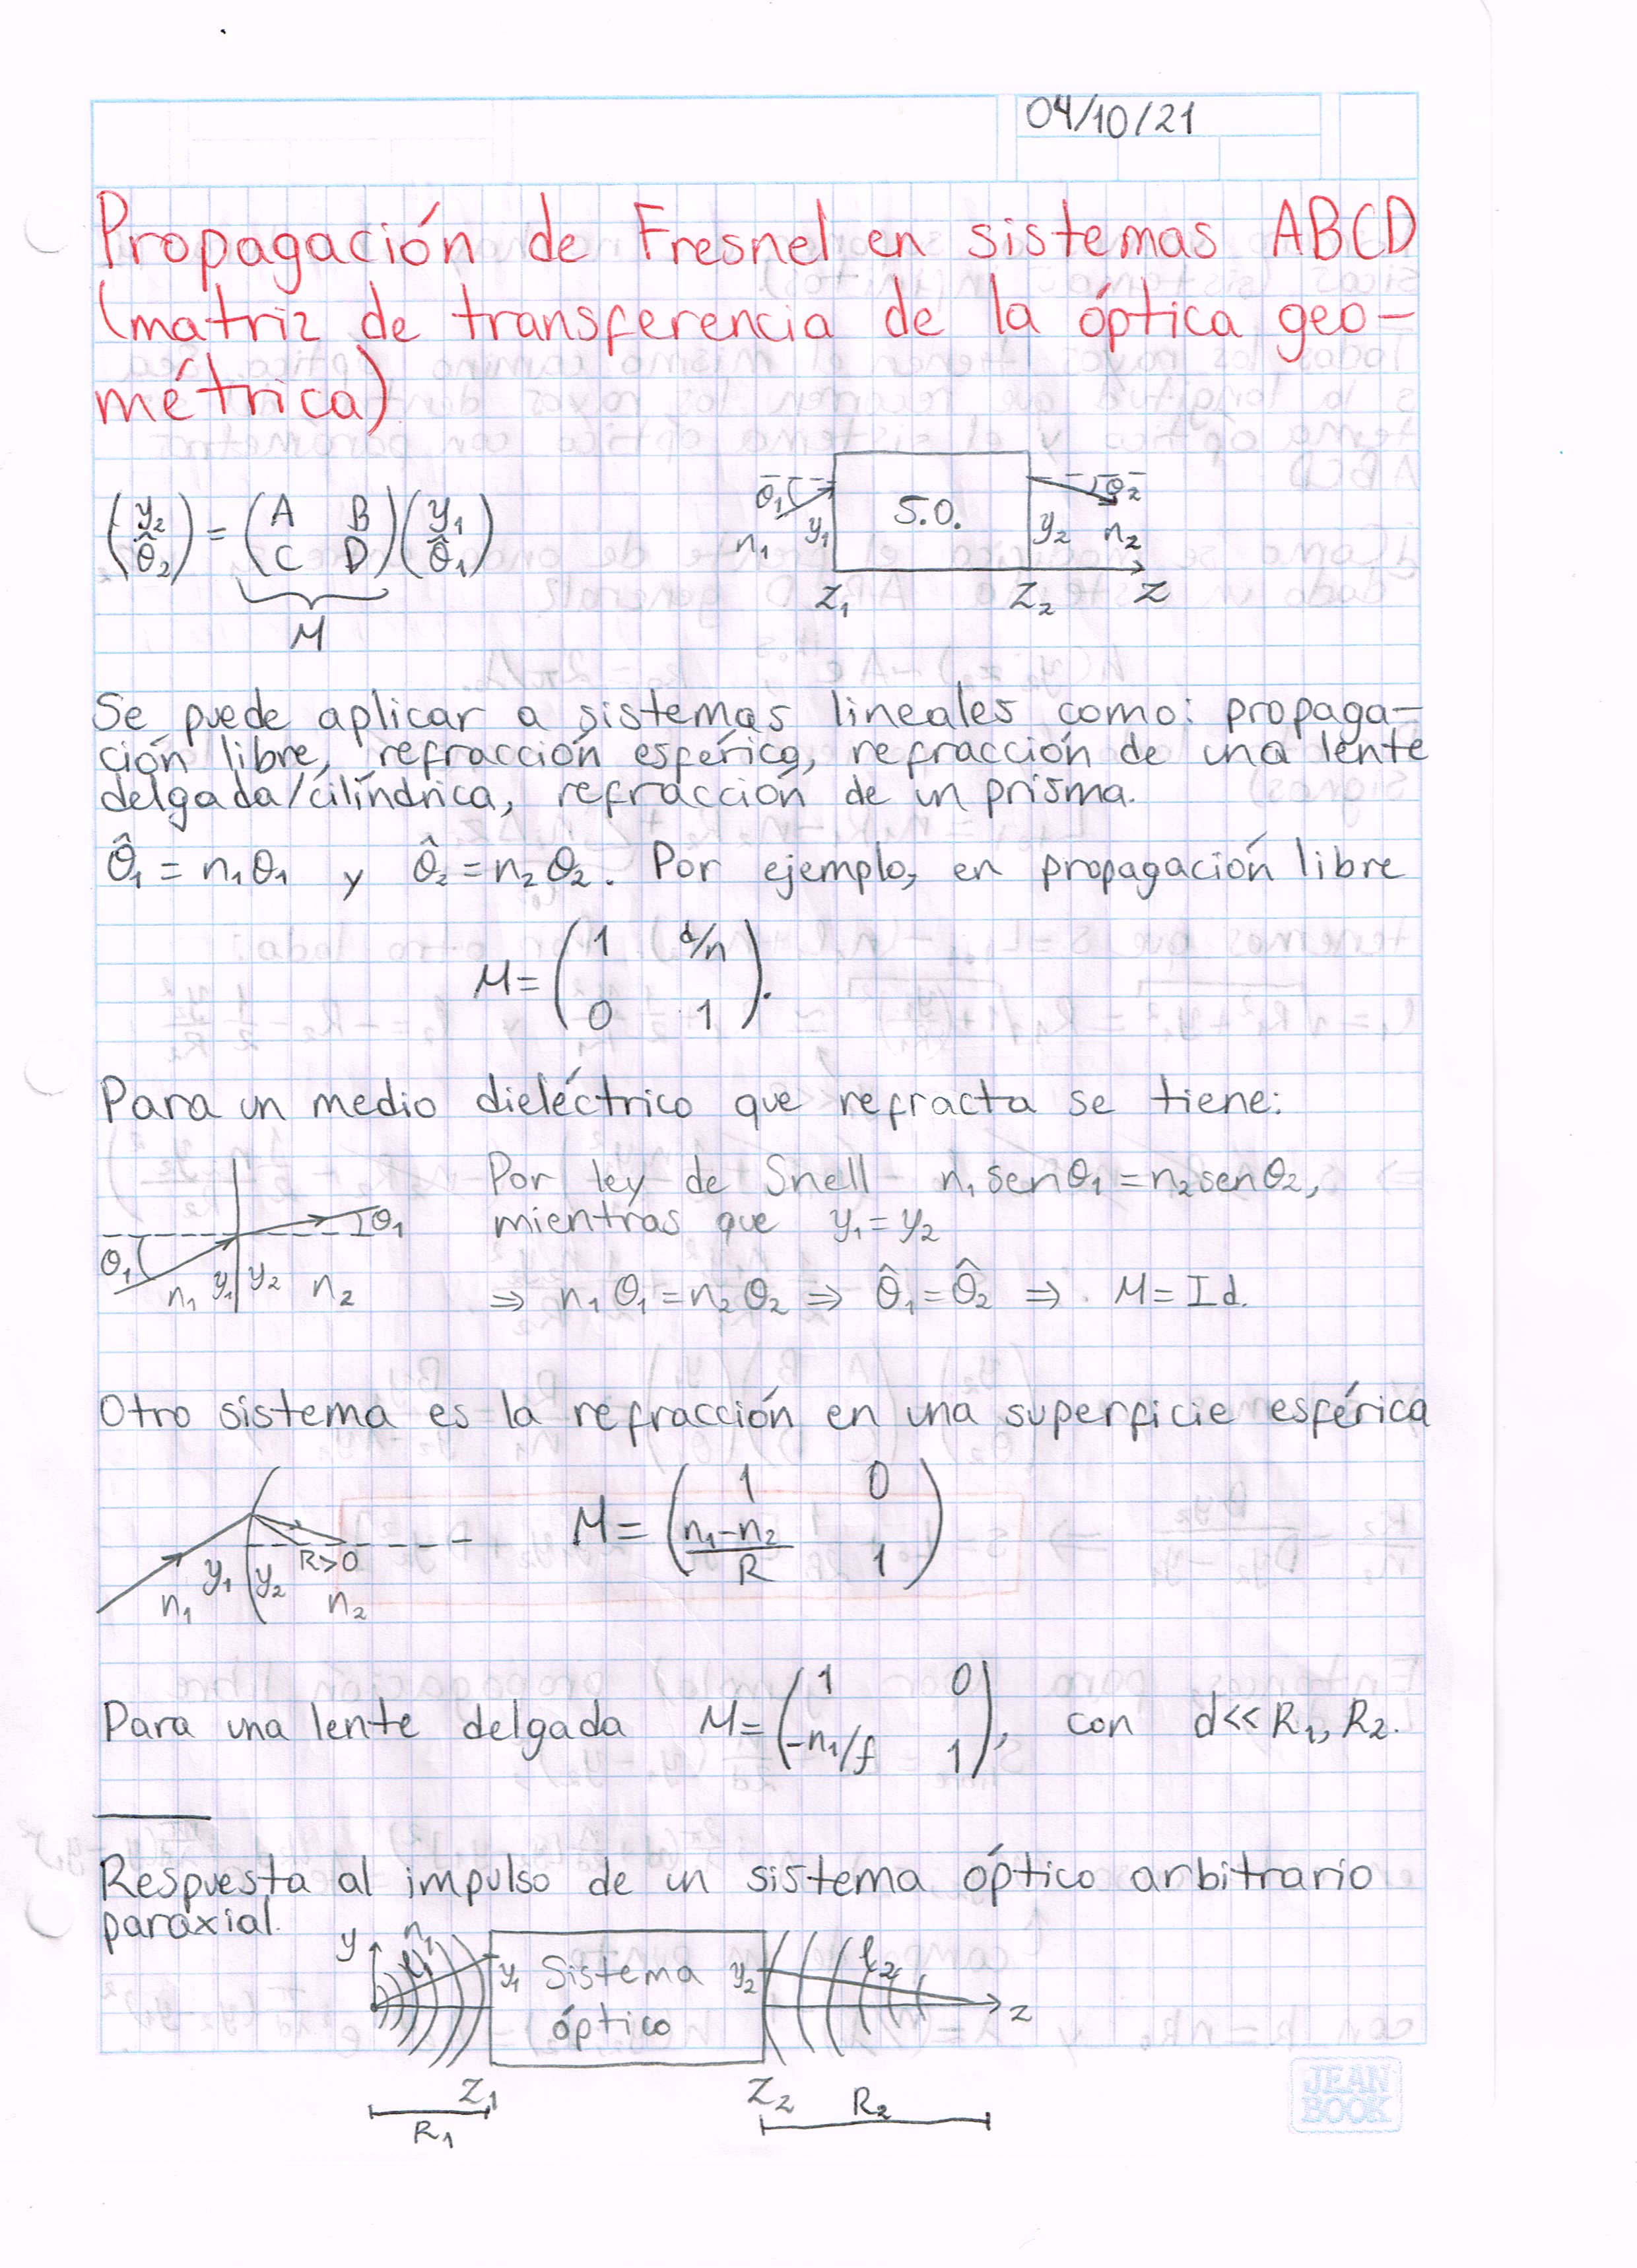 04/10/21
Propagación de Fresnel en sistemas ABCD
(matriz de transferencia de la óptica geo-
métrica)
(y₂ θ̂₂) = (A B C D)(y₁ θ̂₁)
M
θ₁ n₁ y₁ S.O. y₂ θ₂ n₂
z₁ z₂ z
Se puede aplicar a sistemas lineales como: propaga-
ción libre, refracción esférica, refracción de una lente
delgada/cilíndrica, refracción de un prisma.
θ̂₁ = n₁θ₁ y θ̂₂ = n₂θ₂. Por ejemplo, en propagación libre
M = (1 d/n 0 1).
Para un medio dieléctrico que refracta se tiene:
Por ley de Snell n₁senθ₁ = n₂senθ₂,
mientras que y₁ = y₂
⇒ n₁θ₁ = n₂θ₂ ⇒ θ̂₁ = θ̂₂ ⇒ M = Id.
θ₁ n₁ y₁ y₂ n₂ θ₁
Otro sistema es la refracción en una superficie esférica
n₁ y₁ y₂ R>0 n₂
M = (1 0 n₁-n₂/R 1)
Para una lente delgada M = (1 0 -n₁/f 1), con d<<R₁, R₂.
Respuesta al impulso de un sistema óptico arbitrario
paraxial.
y n₁ y₁ Sistema y₂ l₂ z
óptico
z₁ z₂
R₁ R₂
JEAN
BOOK